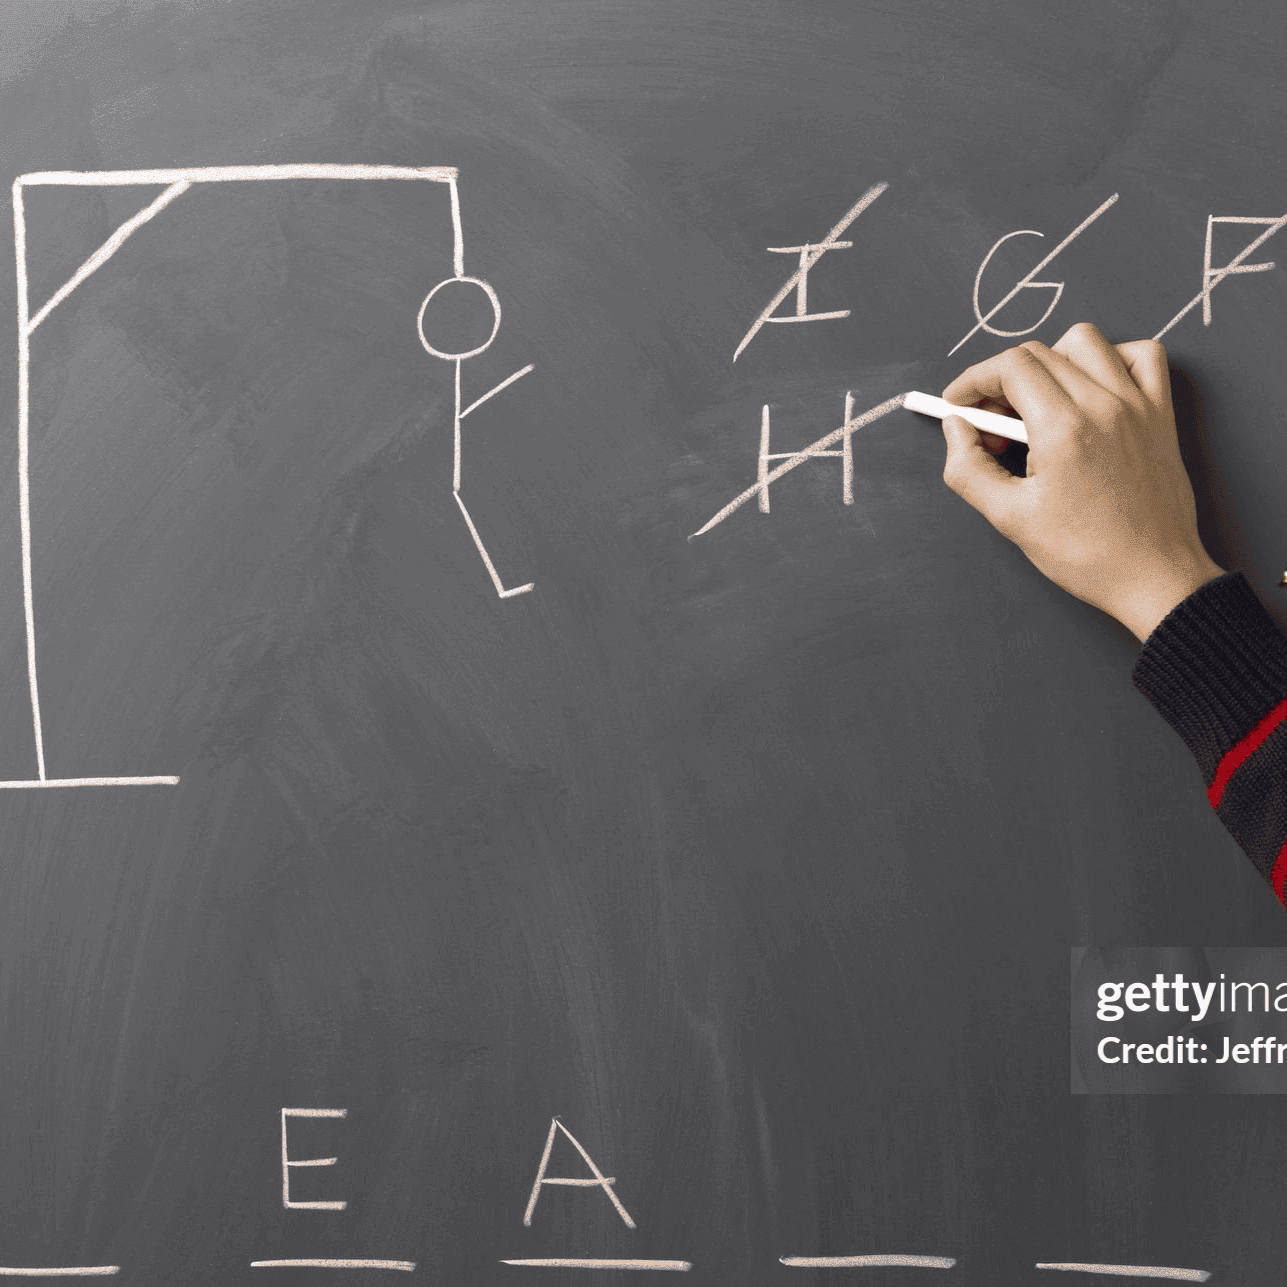 I G F
H
gettyima
Credit: Jeffr
E A